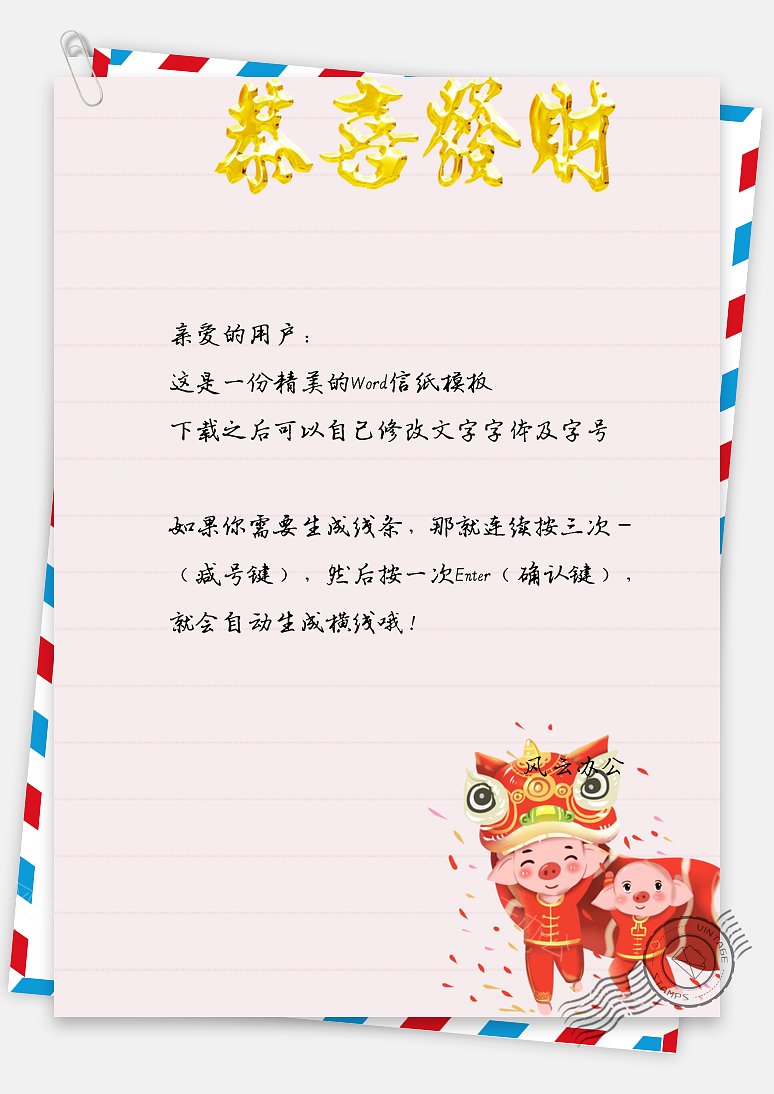 恭喜發財
亲爱的用户：
这是一份精美的Word信纸模板
下载之后可以自己修改文字字体及字号
如果你需要生成线条，那就连续按三次－
（减号键），然后按一次Enter（确认键），
就会自动生成横线哦！
风云办公
VINTAGE
STAMPS